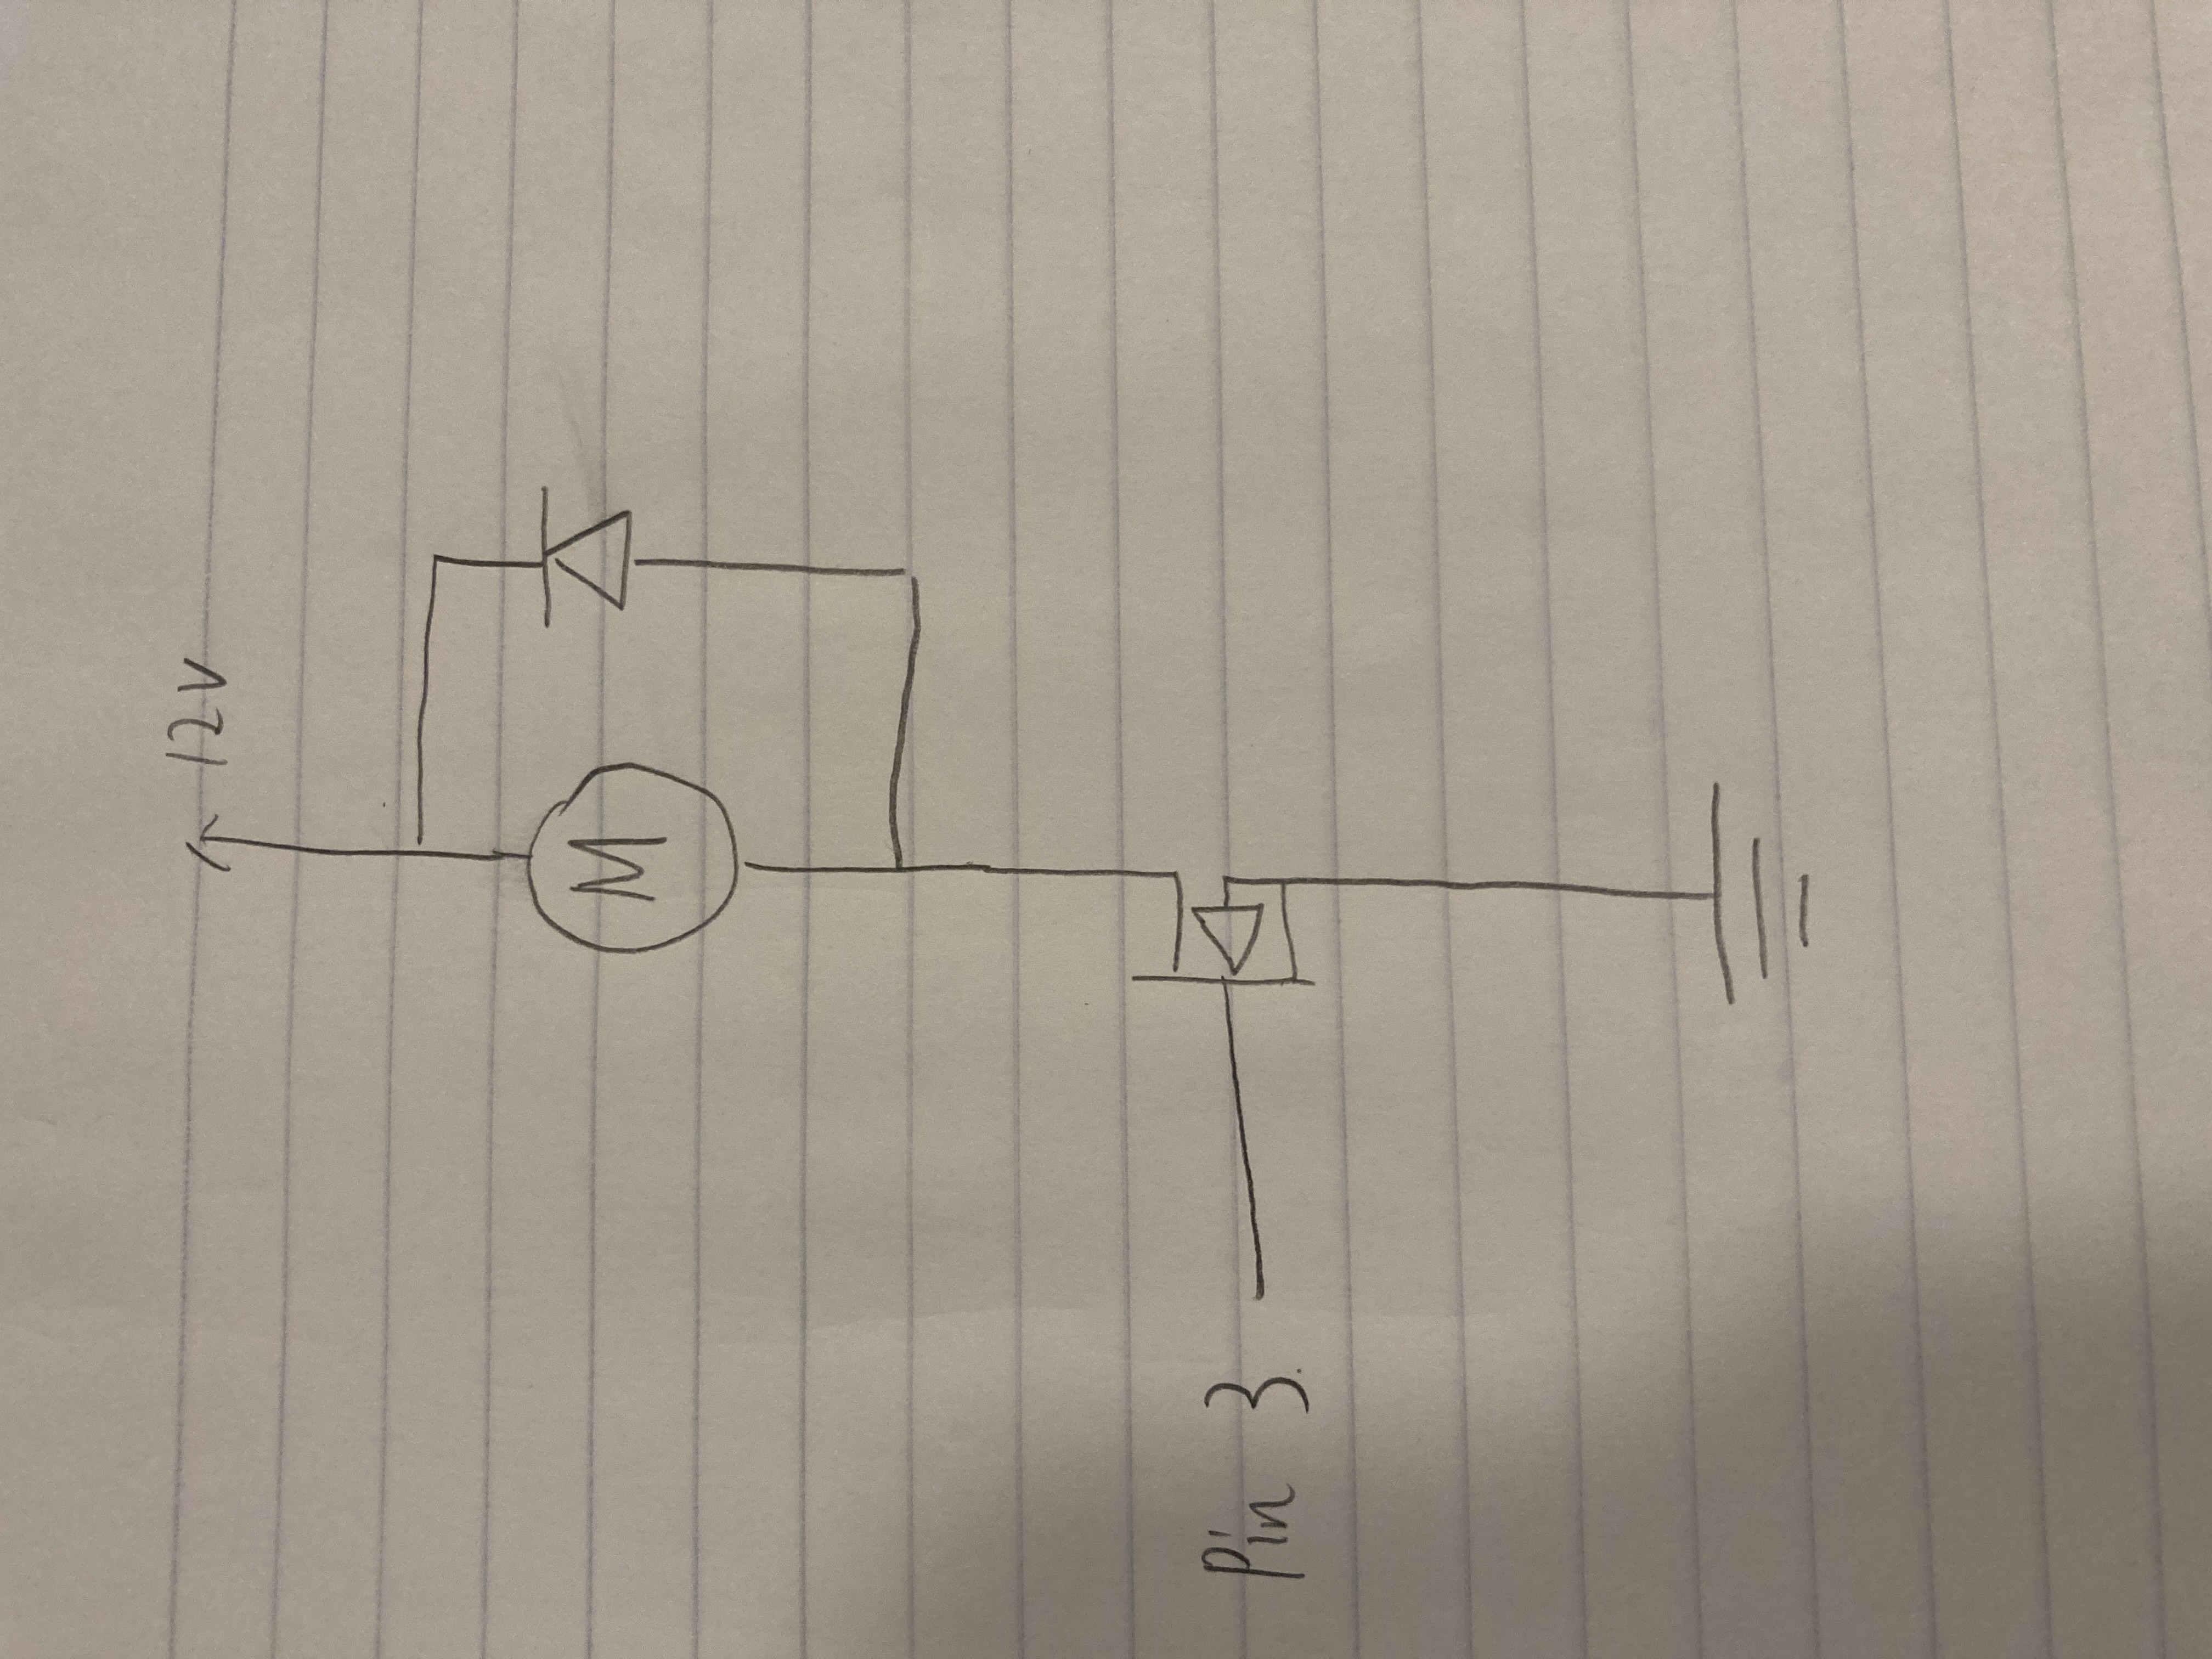 12V
M
Pin 3.